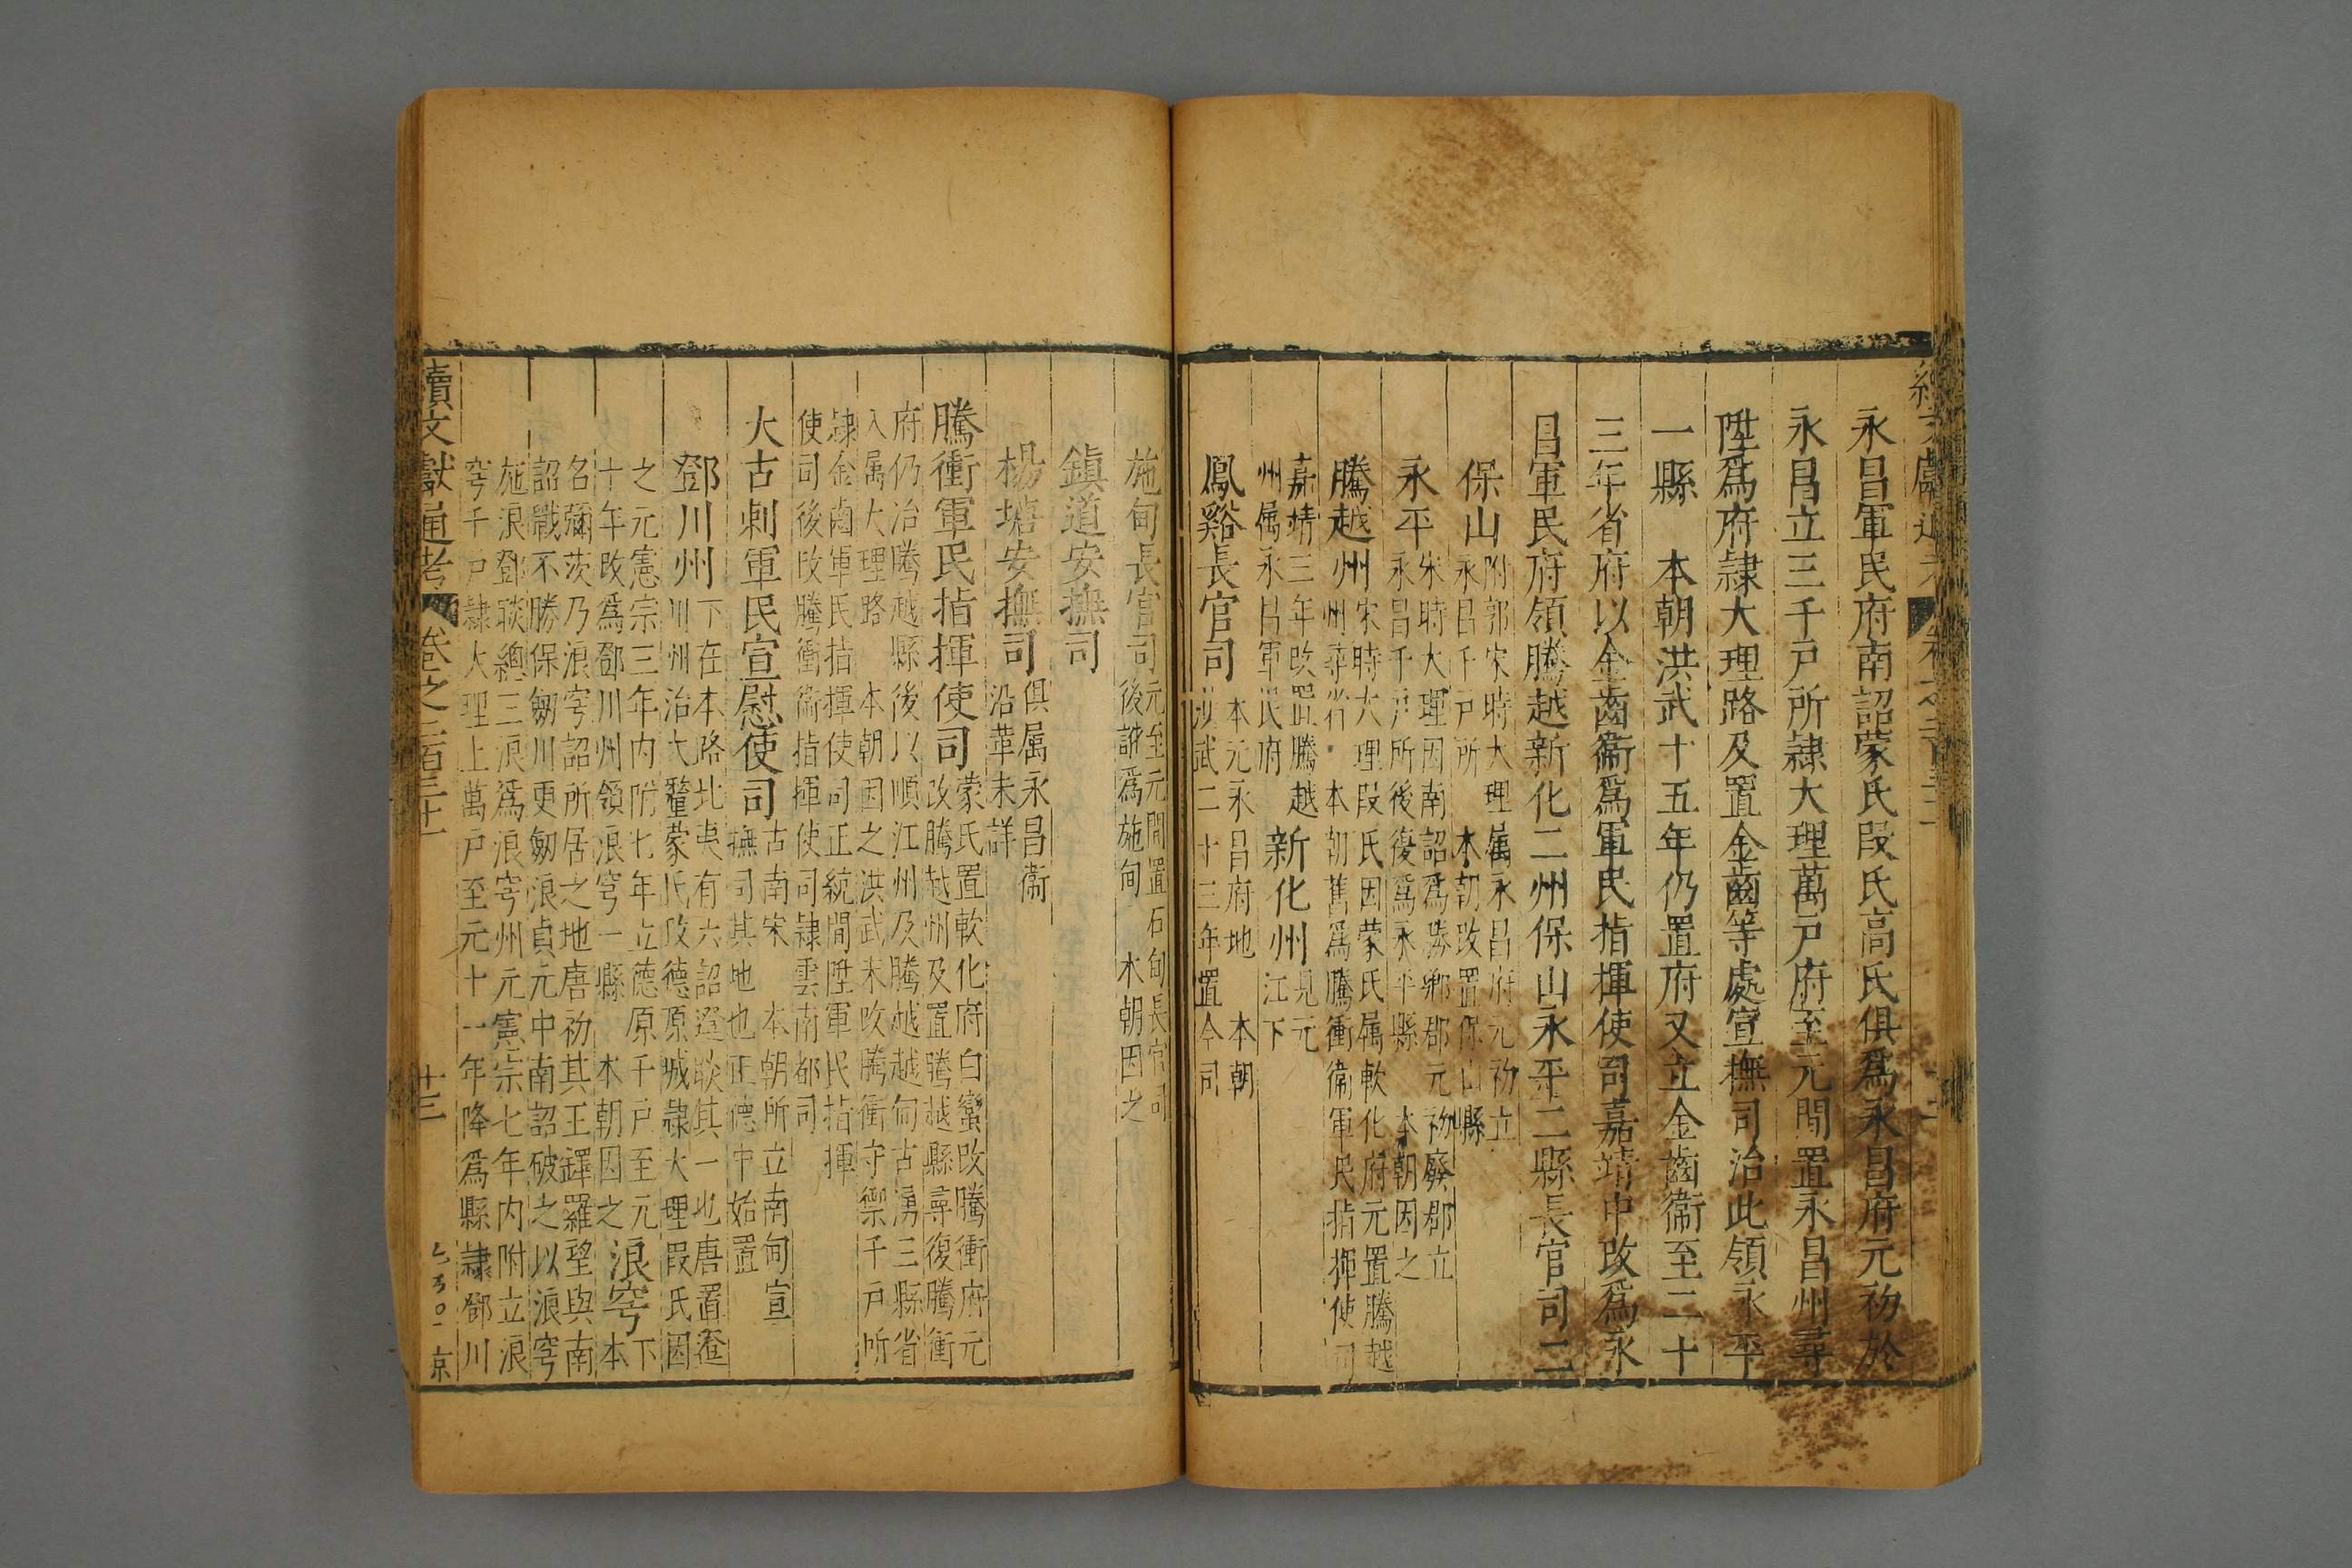 永昌軍民府南詔蒙氏段氏高氏俱爲永昌府元初於
永昌立三千戸所隷大理萬戸府至元間置永昌州尋
陞爲府隷大理路及置金齒等處宣撫司治此領永平
一縣　本朝洪武十五年仍置府又立金齒衞至二十
三年省府以金齒衞爲軍民指揮使司嘉靖中改爲永
昌軍民府領騰越新化二州保山永平二縣長官司二
保山
附郭宋時大理属永昌府元初立
永昌千戸所　本朝改置保山縣
永平
宋時大理因南詔爲勝鄉郡元初廢郡立
永昌千戸所後復爲永平縣　本朝因之
騰越州
宋時大理段氏因蒙氏属軟化府元置騰越
州尋省　本朝舊爲騰衝衞軍民指揮使司
嘉靖三年改置騰越
州属永昌軍民府
新化州
見元
江下
鳳谿長官司
本元永昌府地　本朝
洪武二十三年置今司
施甸長官司
元至元間置石甸長官司
後訛爲施甸　本朝因之
鎮道安撫司
楊塘安撫司
俱属永昌衞
沿革未詳
騰衝軍民指揮使司
蒙氏置軟化府白蠻改騰衝府元
改騰越州及置騰越縣尋復騰衝
府仍治騰越縣後以順江州及騰越越甸古湧三縣省
入属大理路　本朝因之洪武末改騰衝守禦千戸所
隷金齒軍民指揮使司正統間陞軍民指揮
使司後改騰衝衞指揮使司隷雲南都司
大古剌軍民宣慰使司
古南宋　本朝所立南甸宣
撫司其地也正德中始置
鄧川州
下在本路北夷有六詔邆賧其一也唐置邆
川州治大釐蒙氏改德原城隷大理叚氏因
之元憲宗三年內附七年立德原千戸至元
十年改爲鄧川州領浪穹一縣　本朝因之
浪穹
下
本
名彌茨乃浪穹詔所居之地唐初其王鐸羅望與南
詔戰不勝保劒川更劒浪貞元中南詔破之以浪穹
施浪鄧賧總三浪爲浪穹州元憲宗七年内附立浪
穹千戸隷大理上萬戸至元十一年降爲縣隷鄧川
續文獻通考
卷之二百三十一
十三